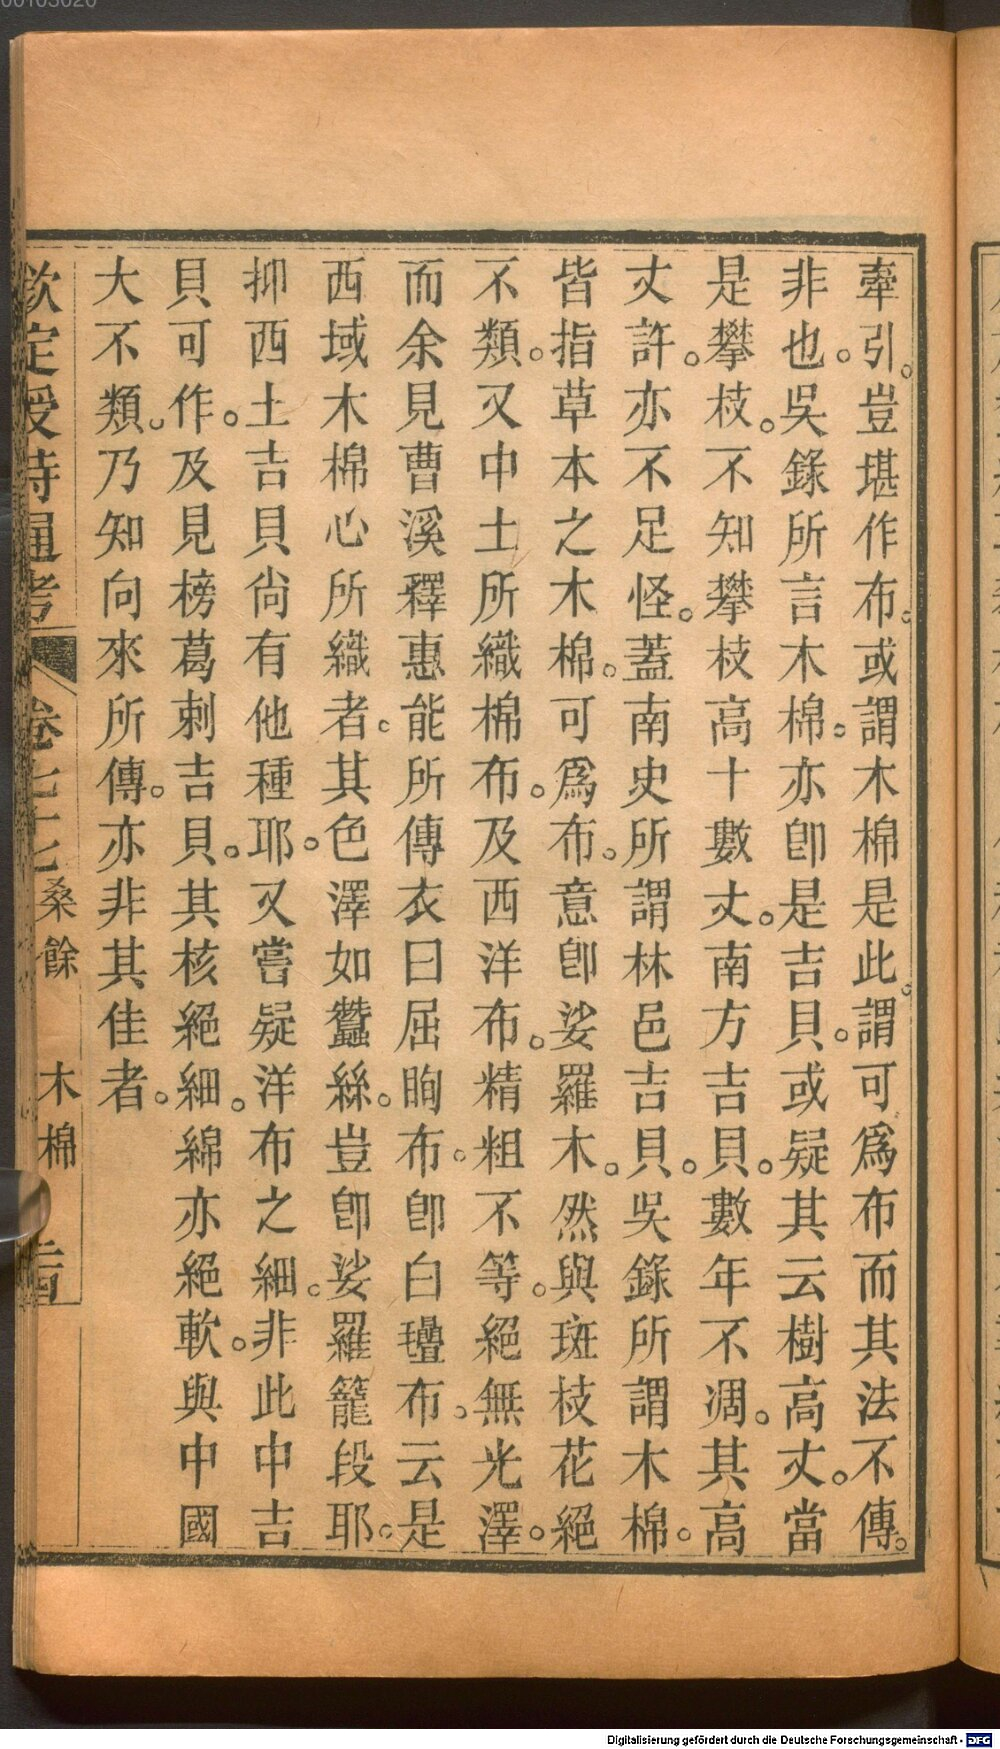 牽引。豈堪作布。或謂木棉是此。謂可爲布而其法不傳。
非也。吳錄所言木棉。亦卽是吉貝。或疑其云樹高丈。當
是攀枝。不知攀枝高十數丈。南方吉貝。數年不凋。其高
丈許。亦不足怪。蓋南史所謂林邑吉貝。吳錄所謂木棉。
皆指草本之木棉。可爲布。意卽娑羅木。然與斑枝花絕
不類。又中土所織棉布。及西洋布。精粗不等。絕無光澤。
而余見曹溪釋惠能所傳衣曰屈眴布。卽白㲲布。云是
西域木棉心所織者。其色澤如蠶絲。豈卽娑羅籠段耶。
抑西土吉貝尙有他種耶。又嘗疑洋布之細。非此中吉
貝可作。及見榜葛剌吉貝。其核絕細。綿亦絕軟。與中國
大不類。乃知向來所傳。亦非其佳者。
欽定授時通考
卷七十七 桑餘 木棉
Digitalisierung gefördert durch die Deutsche Forschungsgemeinschaft - DFG